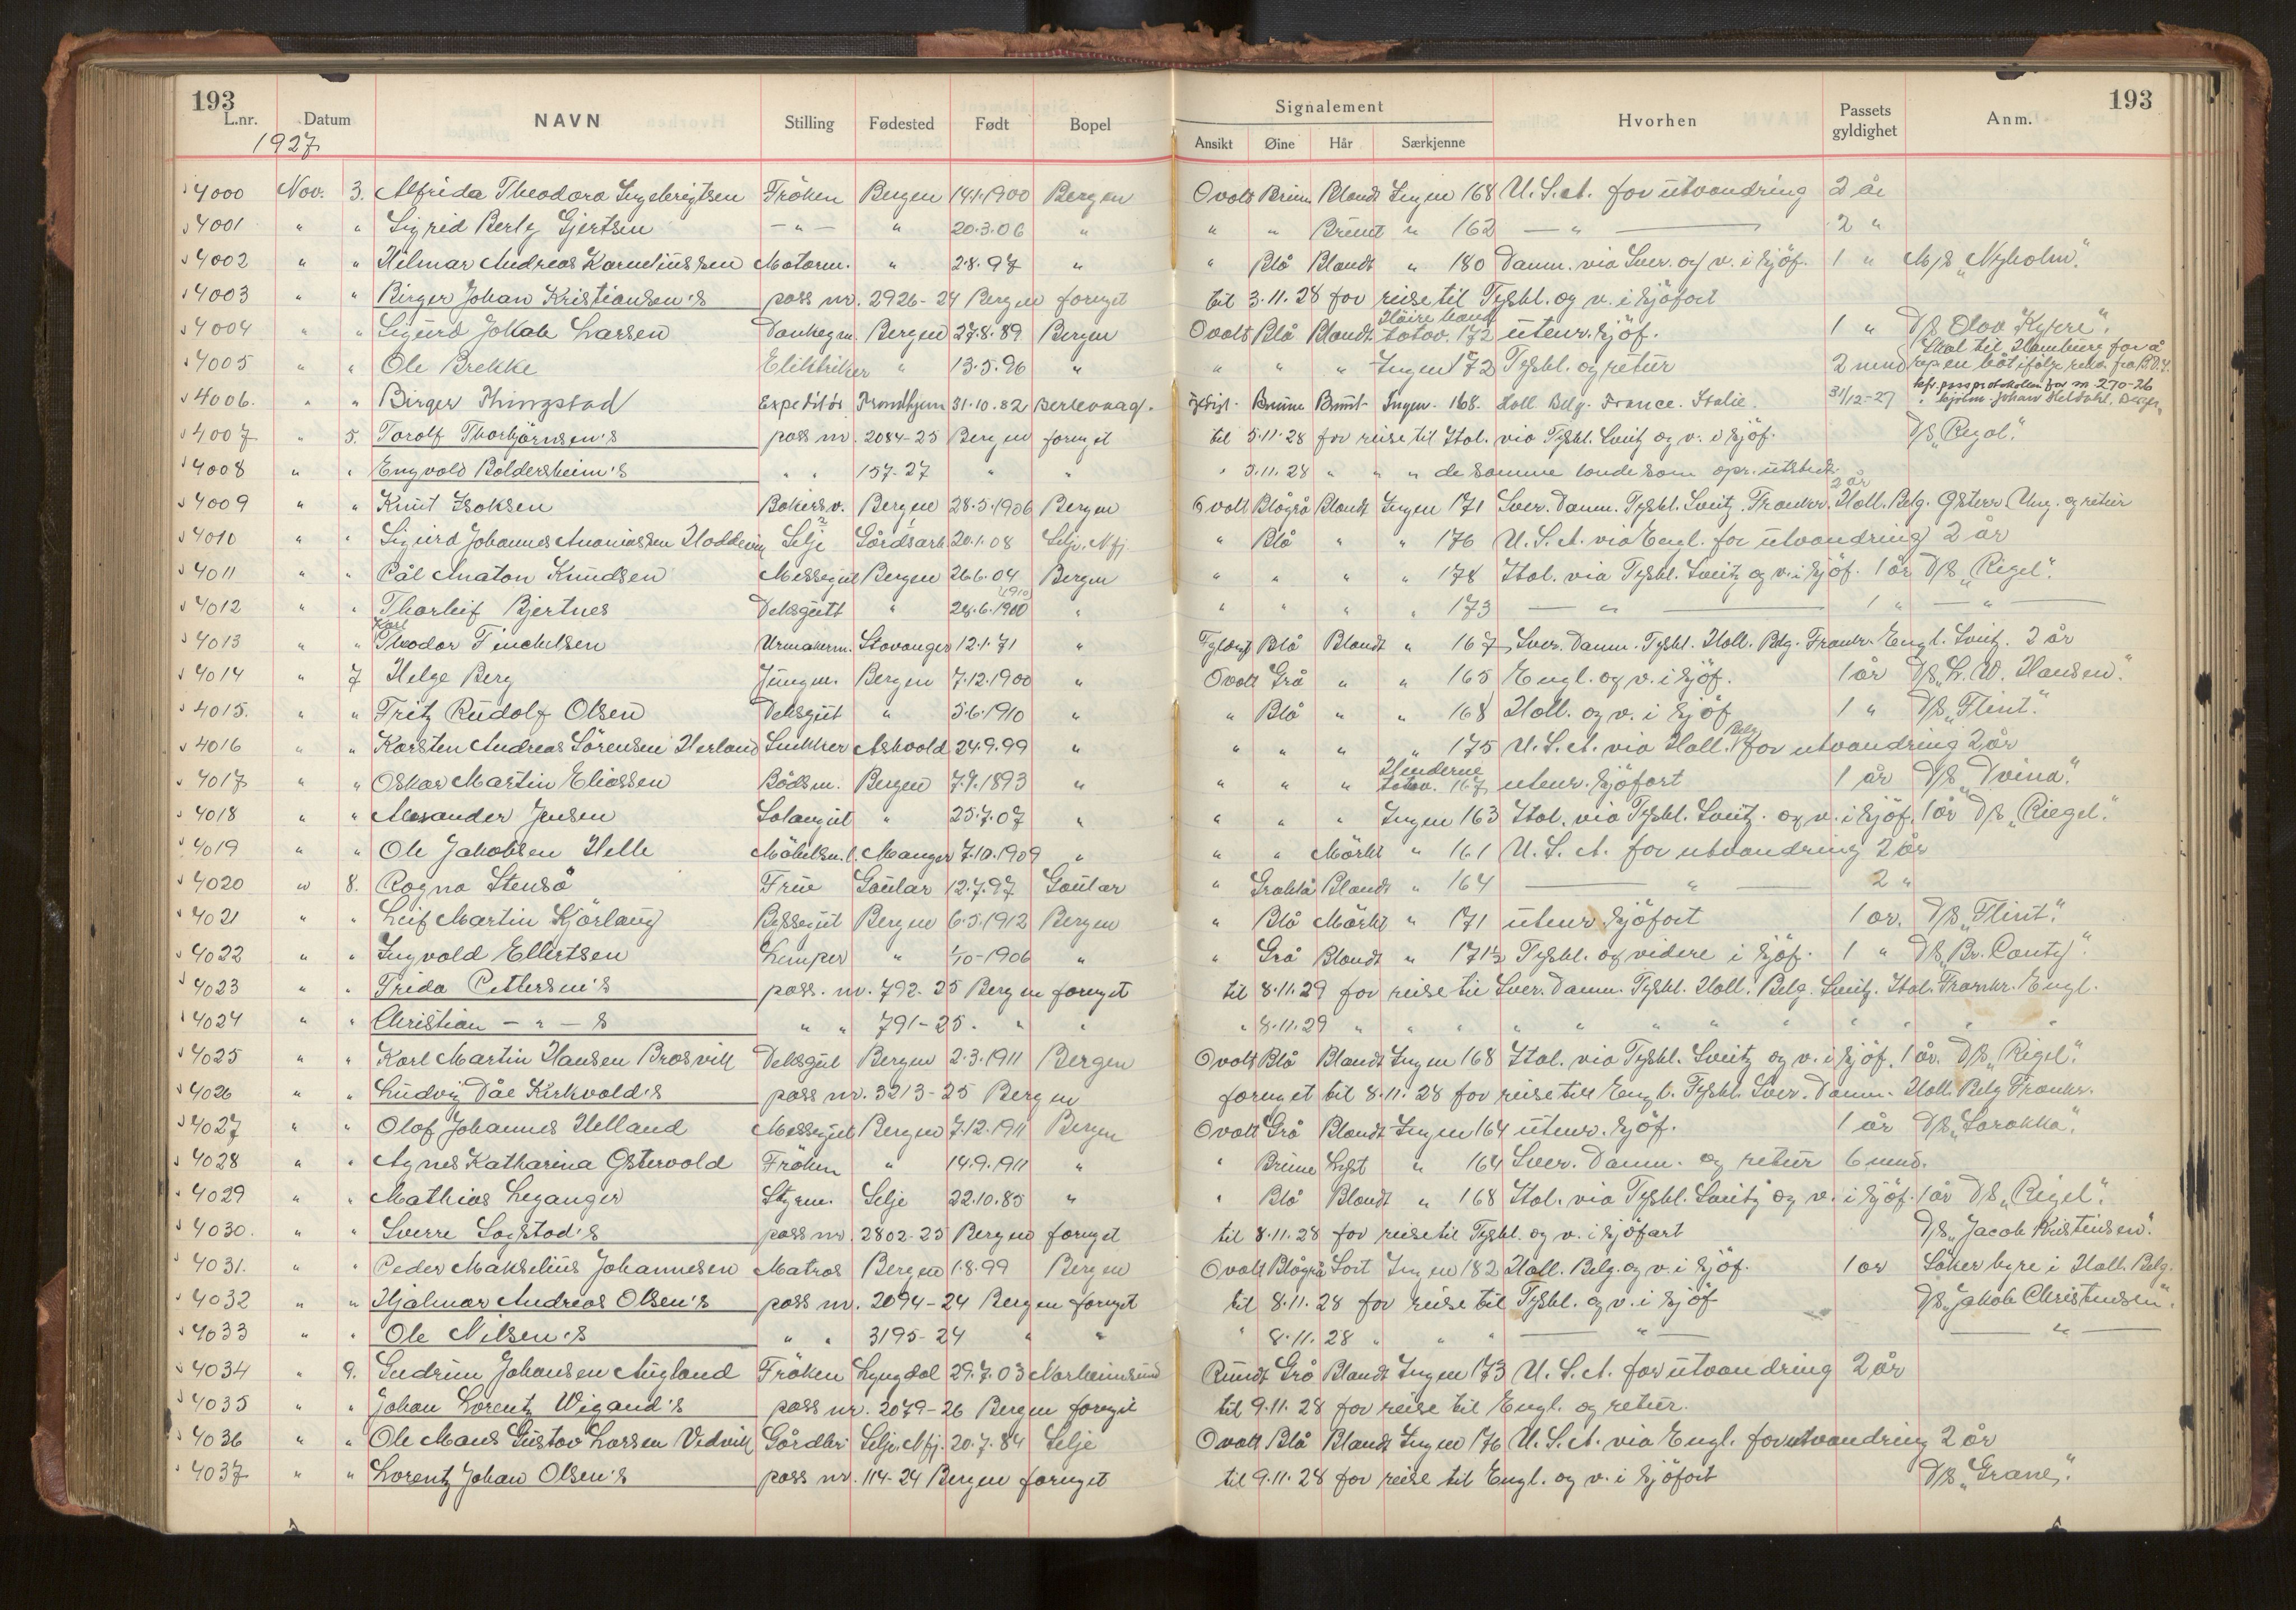 193
193
L.nr. Datum NAVN Stilling Fødested Født Bopel Signalement Hvorhen Passets gyldighet Anm.
1927 Ansikt Øine Hår Særkjenne
4000 Nov. 3. Alfrida Theodora Ingebrigtsen Fröken Bergen 14.1.1900 Bergen Ovalt Brun Blondt Ingen 168 U.S.A. for utvandring 2 år
4001 " " Sigrid Berly Gjertsen - " - " 20.3.06 " " " Brunt " 162 — " — 2 "
4002 " " Hilmar Andreas Korneliussen Motorm. " 2.8.97 " " Blå Blondt " 180 Danm. via Sver. og v. i sjöf. 1 " M/S "Nyholm".
4003 " " Birger Johan Kristiansen's pass nr. 2926-24 Bergen fornyet til 3.11.28 for reise til Tyskl. og v. i sjöfart
4004 " " Sigurd Jakob Larsen Donkeym. Bergen 27.8.89 Bergen Ovalt Blå Blondt Höire hand tatov. 172 utenr. sjöf. 1 " D/S Olav "Kyrre".
4005 " " Ole Brekke Elektriker " 13.5.96 " " " " Ingen 172 Tyskl. og retur 2 mnd Skal til Hamburg for å rep en båt ifölge rekv. fra B.D.S.
4006. " " Birger Thingstad Expeditör Trondhjem 31.10.82 Berlevaag. Ingen. 168. Holl. Belg. France. Italie. 31/12-27 kfr. passprotokollen for nr 270-26
4007 " 5. Torolf Thorbjörnsen's pass nr. 2084-25 Bergen fornyet til 5.11.28 for reise til Ital. via Tyskl. Sveitz og v. i sjöf. D/S "Rigel".
4008 " " Engvald Boldersheim's " " 157-27 " " " 5.11.28 " " " de samme lande som opr. utstedt.
4009 " " Knut Isaksen Bakersv. Bergen 28.5.1906 Bergen Ovalt Blågrå Blondt Ingen 171 Sver. Danm. Tyskl. Sveitz. Frankr. Holl. Belg. Østerr. Ung. og retur 2 år
4010 " " Sigurd Johannes Ananiassen Hoddevik Selje Gårdsarb 20.1.08 Selje, Nfj. " Blå " " 176 U.S.A. via Engl. for utvandring 2 år
4011 " " Pål Anaton Knudsen Messegut Bergen 26.6.04 Bergen " " " " 178 Ital. via Tyskl. Sveitz og v. i sjöf. 1 år D/S "Rigel".
4012 " " Thorleif Bjertnes Deksgutt " 28.6.1910 " " " " " 173 — " — 1 " — " —
4013 " " Karl Theodor Finckelsen Urmakerm. Stavanger 12.1.71 " Blå Blondt " 167 Sver. Danm. Tyskl. Holl. Belg. Frankr. Engl. Sveitz. 2 år
4014 " 7 Helge Berg Jungm. Bergen 7.12.1900 " Ovalt Grå " " 165 Engl. og v. i sjöf. 1 år D/S "L. W. Hansen".
4015. " " Fritz Rudolf Olsen Deksgut " 5.6.1910 " " Blå " " 168 Holl. og v. i sjöf 1 " D/S "Flint".
4016 " " Karsten Andreas Sörensen Herland Snekker Askvold 24.9.99 " " " " " 175 U.S.A. via Holl. Belg for utvandring 2 år
4017 " " Oskar Martin Eliassen Bådsm. Bergen 7.7.1893 " " " " Henderne tatov. 167 utenr. sjöfart 1 år D/S "Dvina".
4018 " " Alexander Jensen Salongut " 25.7.07 " " " " Ingen 163 Ital. via Tyskl. Sveitz. og v. i sjöf. 1 år D/S "Riegel".
4019 " " Ole Jakobsen Helle Möbelsn.l. Manger 7.10.1909 " " " Mörkt " 161 U.S.A. for utvandring 2 år
4020 " 8. Ragna Stenså Frue Gaular 12.7.97 Gaular " Gråblå Blondt " 164 — " — 2 "
4021 " " Leif Martin Kjörlaug Byssegut Bergen 6.5.1912 Bergen " Blå Mörkt " 171 utenr. sjöfart 1 år. D/S "Flint".
4022 " " Ingvald Ellertsen Lemper " 1/10-1906 " " Grå Blondt " 171½ Tyskl. og videre i sjöf. 1 " D/S "Br. County".
4023 " " Frida Pettersen's pass. nr. 792-25 Bergen fornyet til 8.11.29 for reise til Sver. Danm. Tyskl. Holl. Belg. Sveitz. Ital. Frankr. Engl.
4024 " " Christian - " - s " " 791-25. " " " 8.11.29 " " " " " " " " " " " "
4025 " " Karl Martin Hansen Brosvik Deksgut Bergen 2.3.1911 Bergen Ovalt Blå Blondt Ingen 168 Ital. via Tyskl. Sveitz og v. i sjöf. 1 år. D/S "Rigel".
4026 " " Ludvig Dåe Kirkvold's pass nr. 3213-25 Bergen fornyet til 8.11.28 for reise till Engl. Tyskl. Sver. Danm. Holl. Belg Frankr.
4027 " " Olaf Johannes Helland Messegut Bergen 7.12.1911 Bergen Ovalt Grå Blondt Ingen 164 utenr. sjöf. 1 år D/S "Sarokka".
4028 " " Agnes Katharina Østervold Fröken " 14.9.1911 " " Brune Lyst " 164 Sver. Danm. og retur 6 mnd.
4029 " " Mathias Leganger Styrm. Selje 22.10.85 " " Blå Blondt " 168 Ital. via Tyskl. Sveitz og v. i sjöf. 1 år D/S "Rigel".
4030. " " Sverre Sagstad's pass nr. 2802-25 Bergen fornyet til 8.11.28 for reise til Tyskl. og v. i sjöfart D/S "Jacob Kristensen".
4031. " " Peder Makselius Johannesen Matros Bergen 1.8.99 Bergen Ovalt Blågrå Sort Ingen 182 Holl. Belg. og v. i sjöf. 1 år Söker hyre i Holl. Belg.
4032 " " Hjalmar Andreas Olsen's pass nr. 2094-24 Bergen fornyet til 8.11.28 for reise til Tyskl. og v. i sjöf D/S "Jakob Christensen".
4033 " " Ole Nilsen's " " 3195-24 " " " 8.11.28 " " " — " — — " —
4034 " 9. Gudrun Johansen Augland Fröken Lyngdal 29.7.03 Norheimsund Rundt Grå Blondt Ingen 173 U.S.A. for utvandring 2 år
4035 " " Johan Lorentz Wigand's pass nr. 2079-26 Bergen fornyet til 9.11.28 for reise til Engl. og retur.
4036 " " Ole Mans Gustav Larsen Vedvik Gårdbr. Selje, Nfj. 20.7.84 Selje Ovalt Blå Blondt Ingen 176 U.S.A. via Engl. for utvandring 2 år
4037 " " Lorentz Johan Olsen's pass nr. 114-24 Bergen fornyet til 9.11.28 for reise til Engl. og v. i sjöfart D/S "Grane".